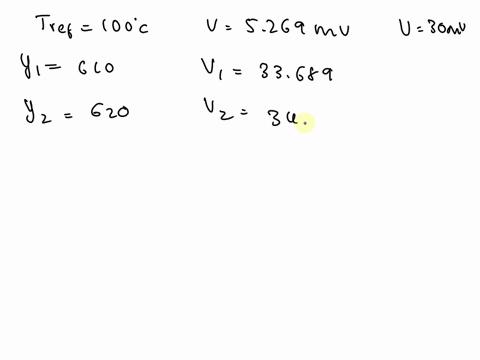 Tref = 100°C V = 5.269 mV V = 30mV
y1 = 610 V1 = 33.689
y2 = 620 V2 = 34.